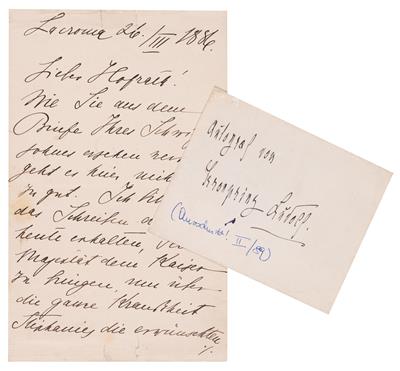 Lacroma 26./III 1886.
Lieber Hofrath!
Wie Sie aus dem
Briefe Ihres Schwieger
sohnes ersehen werden
geht es hier nicht
zu gut. Ich bitte
das Schreiben
heute erhalten,
Majestät dem Kaiser
zu bringen, um über
die ganze Krankheit
Stephanies die erwünschten
./.
Autograf von
Kronprinz Rudolf.
II/89)